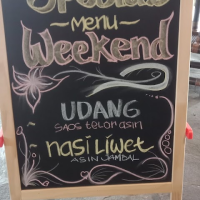 Special
~ Menu ~
Weekend
UDANG
SAOS TELOR ASIN
nasi Liwet
ASIN JAMBAL